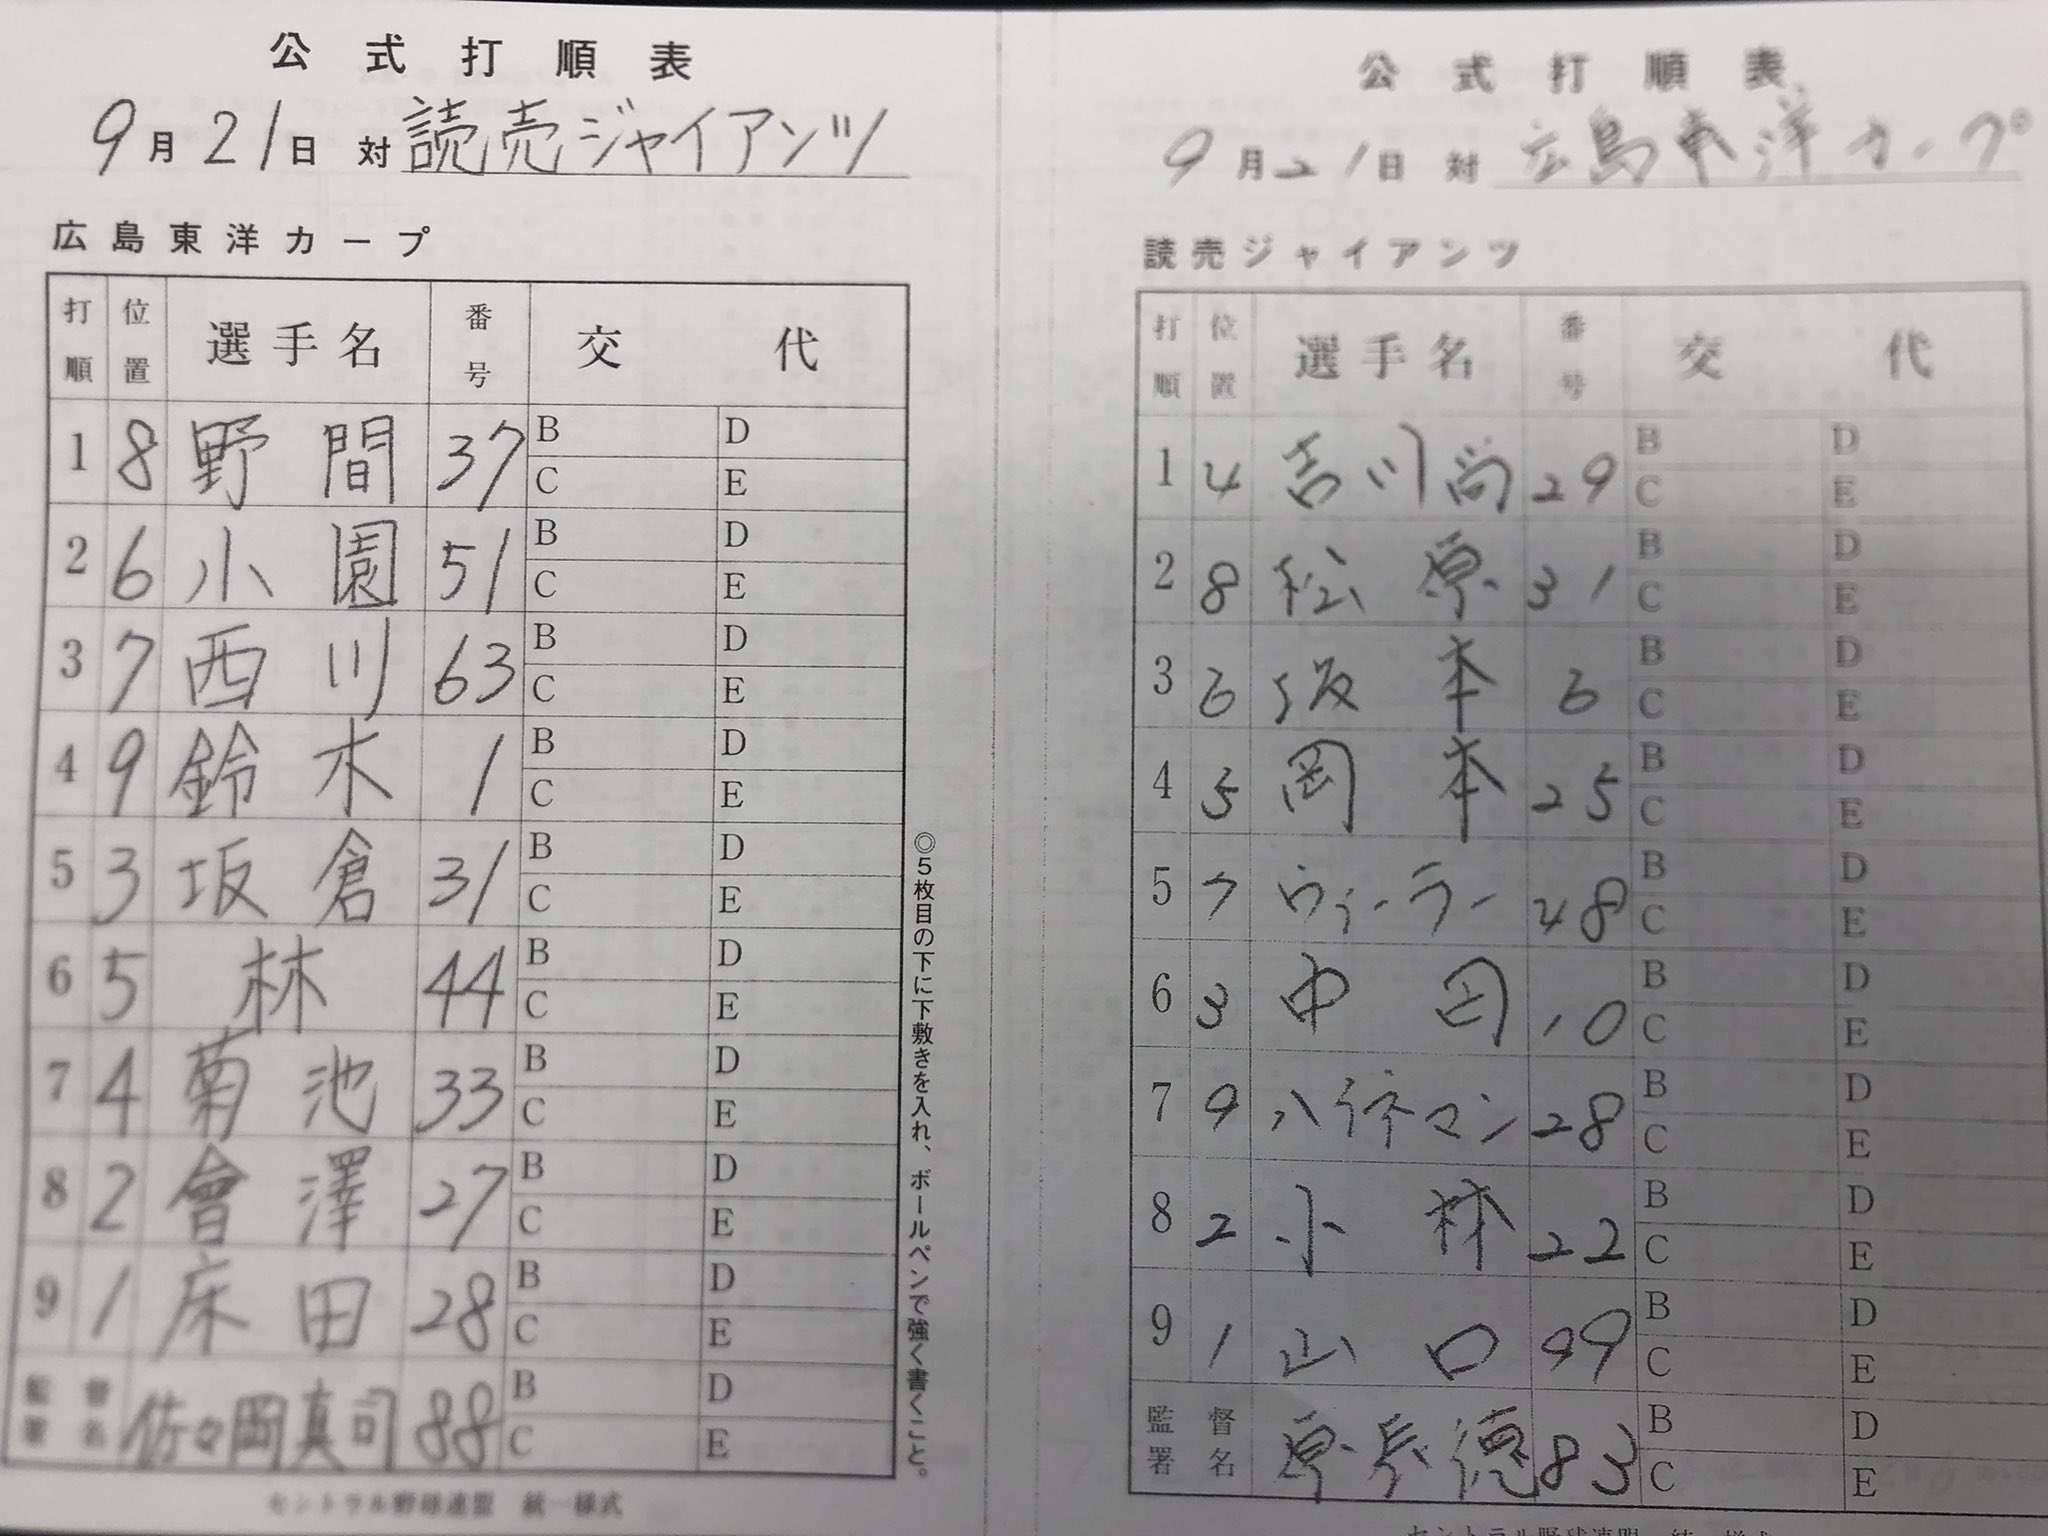 公式打順表
9月21日 対 読売ジャイアンツ
広島東洋カープ
打順 位置 選手名 番号 交代
1 8 野間 37 B D
C E
2 6 小園 51 B D
C E
3 7 西川 63 B D
C E
4 9 鈴木 1 B D
C E
5 3 坂倉 31 B D
C E
6 5 林 44 B D
C E
7 4 菊池 33 B D
C E
8 2 會澤 27 B D
C E
9 1 床田 28 B D
C E
監督署名 佐々岡真司 88 B D
C E
セントラル野球連盟 統一様式
◎5枚目の下に下敷きを入れ、ボールペンで強く書くこと。
公式打順表
9月21日 対 広島東洋カープ
読売ジャイアンツ
打順 位置 選手名 番号 交代
1 4 吉川尚 29 B D
C E
2 8 松原 31 B D
C E
3 6 坂本 6 B D
C E
4 5 岡本 25 B D
C E
5 7 ウィーラー 48 B D
C E
6 3 中田 10 B D
C E
7 9 ハイネマン 28 B D
C E
8 2 小林 22 B D
C E
9 1 山口 99 B D
C E
監督署名 原辰徳 83 B D
C E
セントラル野球連盟 統一様式